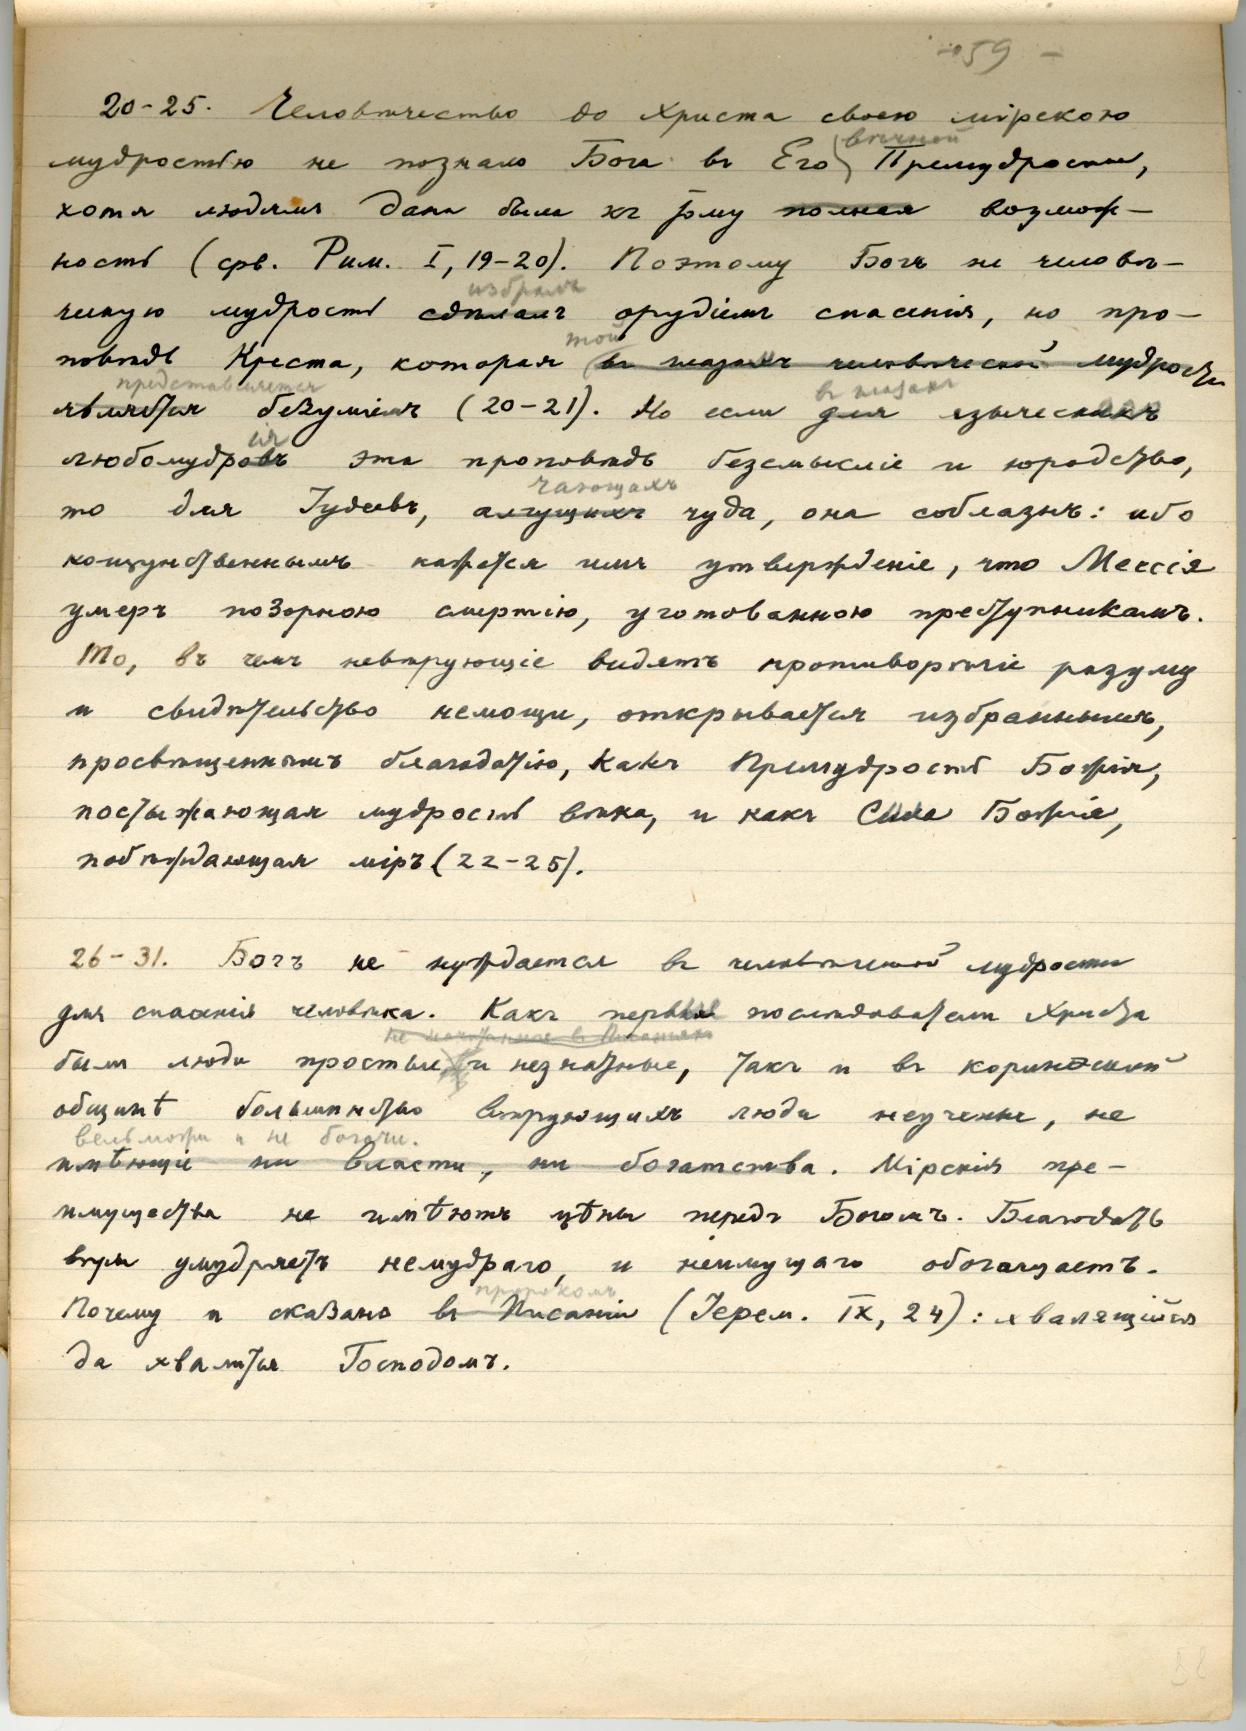 - 59 -
20-25. Человѣчество до Христа своею мірскою
вѣчной
мудростію не познало Бога въ Его Премудрости,
хотя людямъ дана была къ тому полная возмож-
ность (срв. Рим. I, 19-20). Поэтому Богъ не человѣ-
избралъ
ческую мудрость сдѣлалъ орудіемъ спасенія, но про-
той
повѣдь Креста, которая въ глазахъ человѣческой мудрости
представляется в глазахъ
является безуміемъ (20-21). Но если для языческихъ
ія
любомудровъ эта проповѣдь безсмысліе и юродство,
чающихъ
то для Іудеевъ, алчущихъ чуда, она соблазнъ: ибо
кощунственнымъ кажется имъ утвержденіе, что Мессія
умеръ позорною смертію, уготованною преступникамъ.
То, въ чемъ невѣрующіе видятъ противорѣчіе разуму
и свидѣтельство немощи, открывается избраннымъ,
просвѣщеннымъ благодатію, какъ Премудрость Божія,
постыжающая мудрость вѣка, и какъ Сила Божія,
побѣждающая міръ (22-25).
26-31. Богъ не нуждается въ человѣческой мудрости
для спасенія человѣка. Какъ первые послѣдователи Христа
не
были люди простые и незнатные, такъ и въ коринѳской
общинѣ большинство вѣрующихъ люди неученые, не
вельможи и не богачи.
имѣющіе ни власти, ни богатства. Мірскія пре-
имущества не имѣютъ цѣны передъ Богомъ. Благодать
вѣры умудряетъ немудраго, и неимущаго обогащаетъ.
пророкомъ
Почему и сказано въ Писаніи (Іерем. IX, 24): хвалящійся
да хвалится Господомъ.
58